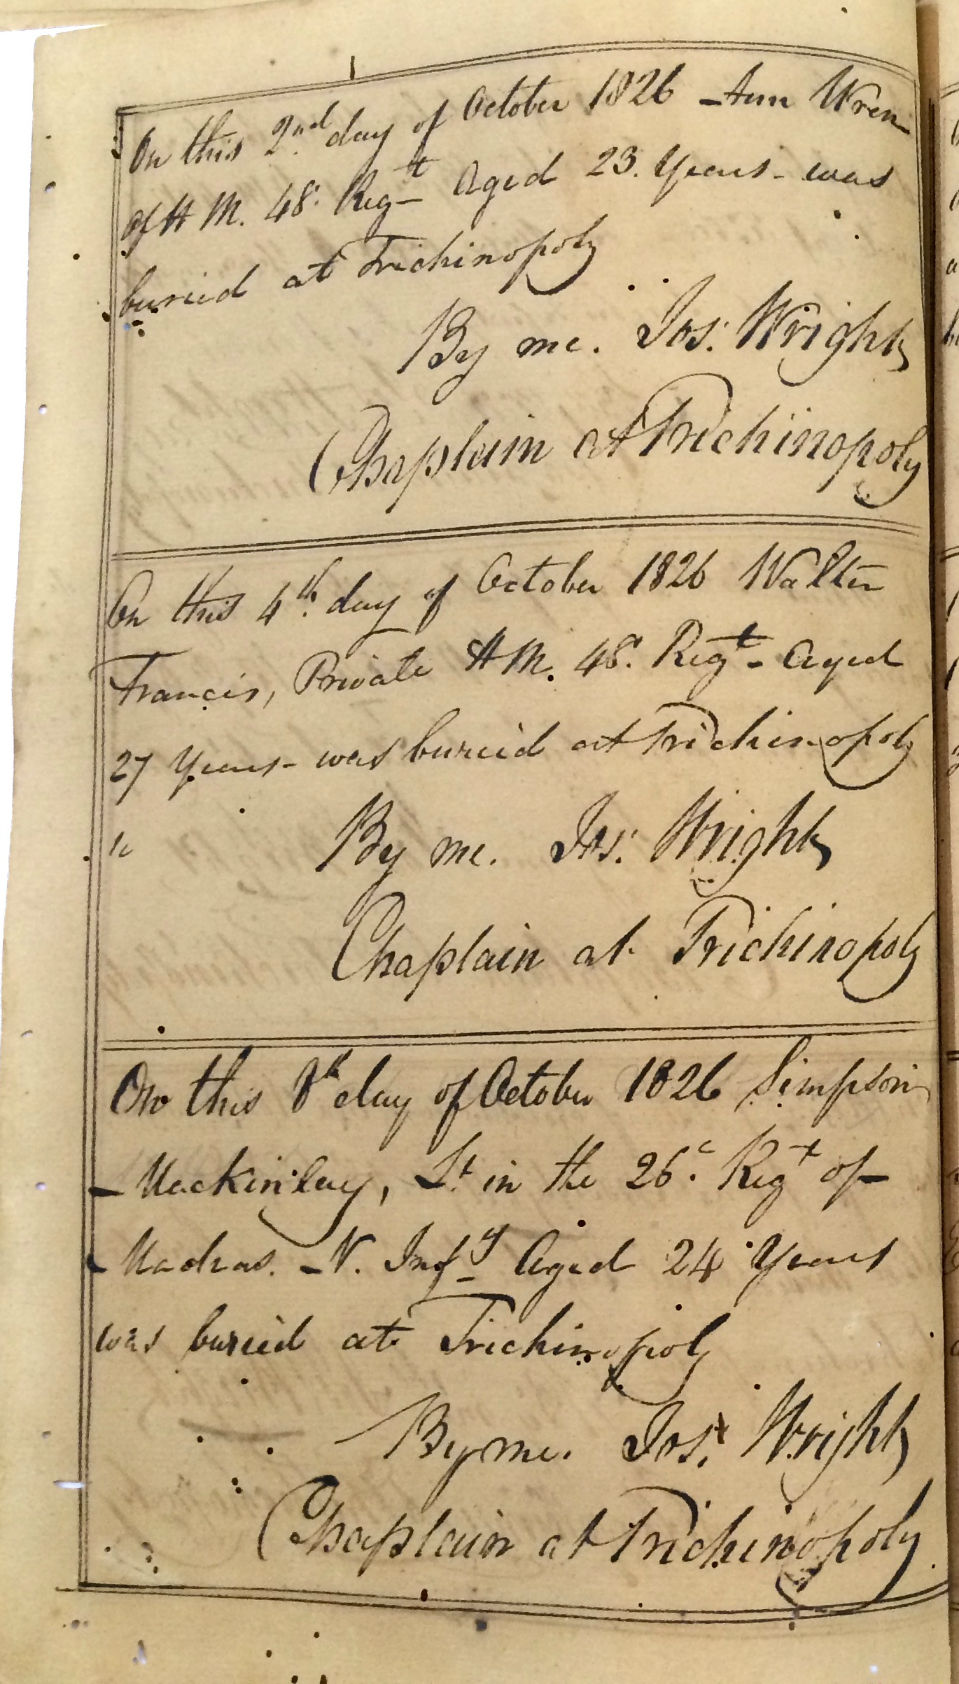 On this 2nd day of October 1826 Ann Wren
of H M. 48. Regt Aged 23. Years was
buried at Trichinopoly
By me. Jos: Wright
Chaplain at Trichinopoly
On this 4th day of October 1826 Walter
Francis, Private H M. 48. Regt Aged
27 Years was buried at Trichinopoly
By me. Jos: Wright
Chaplain at Trichinopoly
On this 8th day of October 1826 Simpson
Mackinlay, Lt in the 26. Regt of
Madras. N. Infy Aged 24 Years
was buried at Trichinopoly
By me. Jos: Wright
Chaplain at Trichinopoly